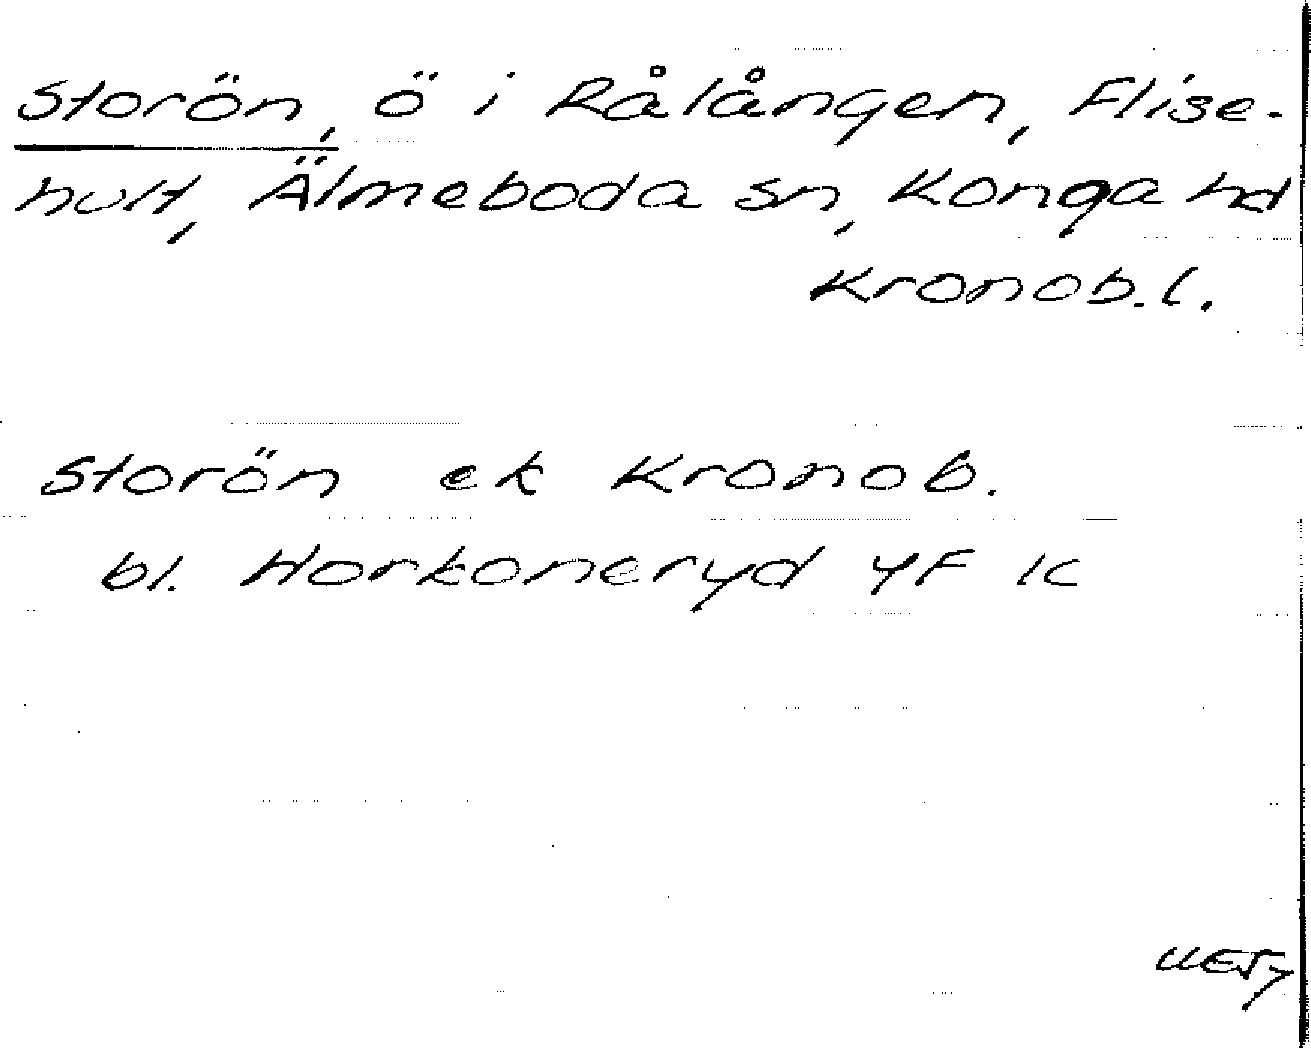 Storön, ö i Rålången, Flise-
hult, Älmeboda sn, Konga hd
Kronob. l.
Storön ek Kronob.
bl. Horkoneryd 4F 1c